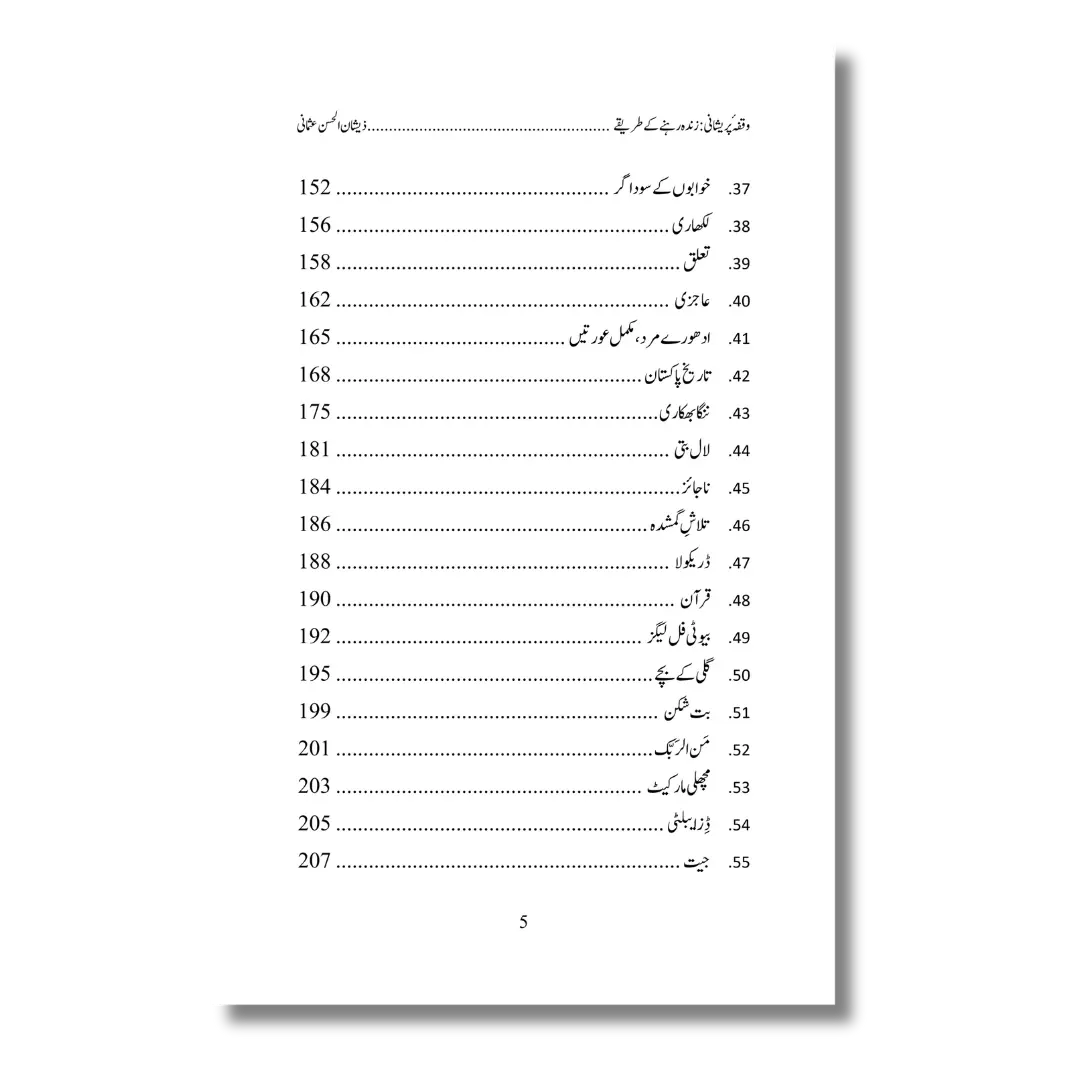 وقفۂ پریشانی: زندہ رہنے کے طریقے ........................................................ ذیشان الحسن عثمانی
37. خوابوں کے سوداگر .................................................. 152
38. لکھاری ............................................................. 156
39. تعلق ............................................................... 158
40. عاجزی ............................................................. 162
41. ادھورے مرد، مکمل عورتیں .......................................... 165
42. تاریخ پاکستان ........................................................ 168
43. ننگا بھکاری ........................................................... 175
44. لال بتی ............................................................. 181
45. ناجائز ............................................................... 184
46. تلاشِ گمشدہ ......................................................... 186
47. ڈریکولا ............................................................. 188
48. قرآن .............................................................. 190
49. بیوٹی فل لیگز ........................................................ 192
50. گلی کے بچے .......................................................... 195
51. بت شکن ........................................................... 199
52. مَن الرَبُّک .......................................................... 201
53. مچھلی مارکیٹ ........................................................ 203
54. ڈِزایبلٹی ............................................................ 205
55. جیت ............................................................... 207
5